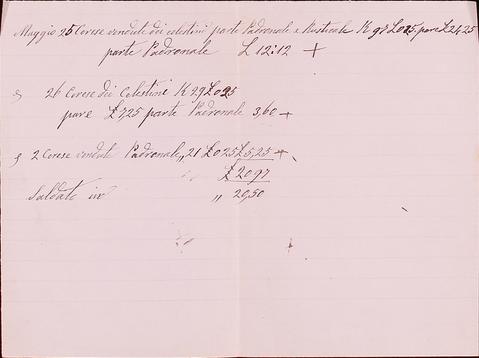 Maggio 25 Cerese vendute dei celestini parte Padronale e Rusticale K 97 L 025. pare £ 24,25
parte Padronale L 12:12 +
26 Cerese dei Celestini K 29 L 025
pare £ 7,25 parte Padronale 3,60 +
2 Cerese vendute Padronale, 21 L 025 £ 5,25 +
£ 20 97
Saldato in „ 20,50